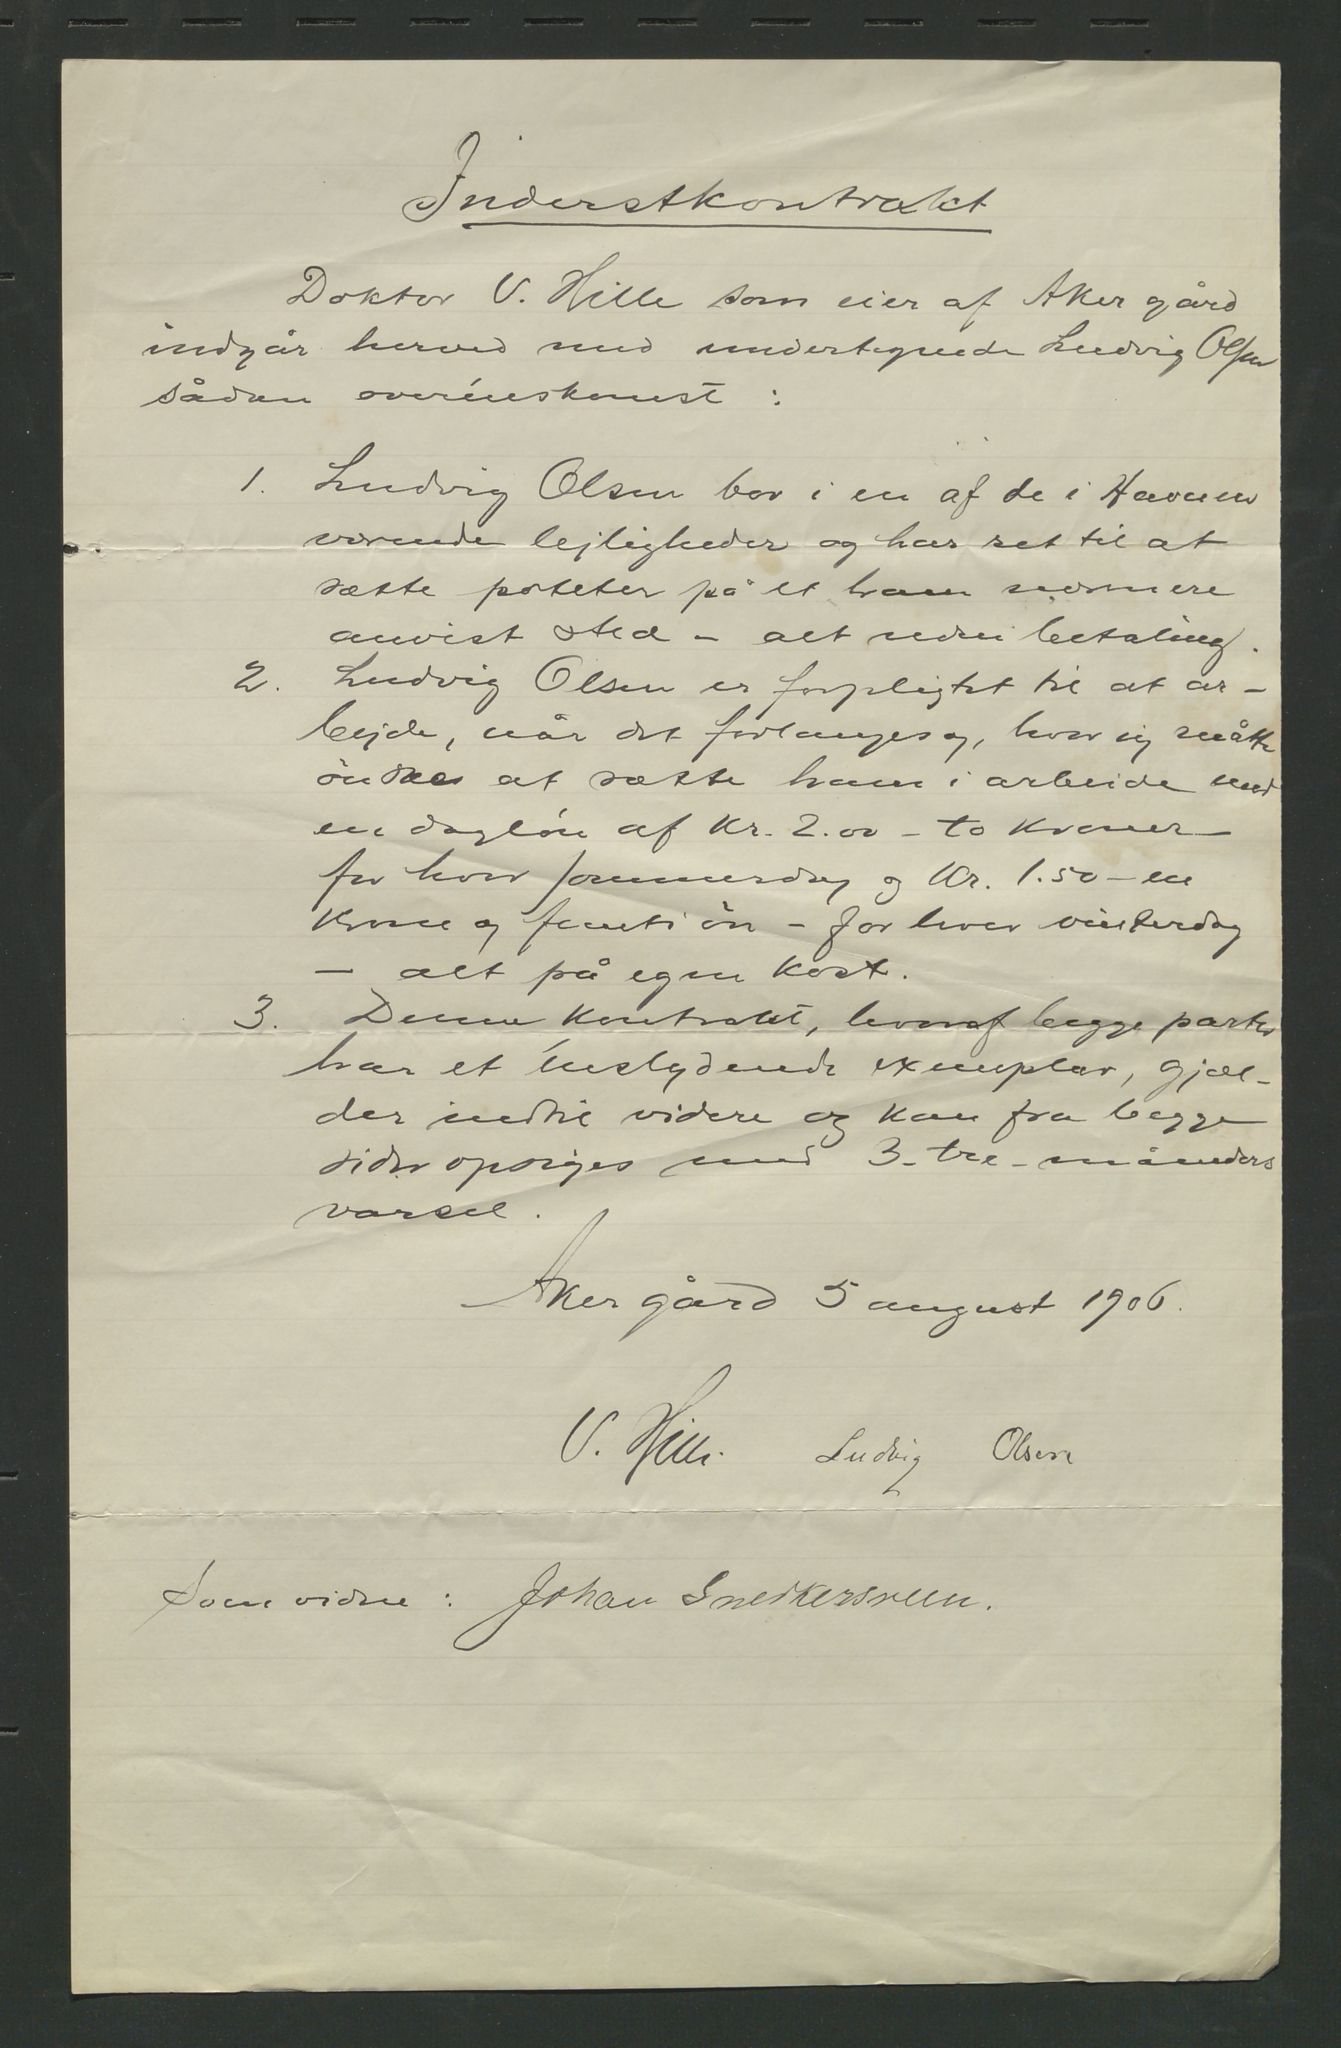 Inderstkontrakt
Doktor V. Hille som eier af Aker gård
indgår herved med undertegnede Ludvig Olsen
sådan overénskomst :
1. Ludvig Olsen bor i en af de i Havnen
værende lejligheder og har ret til at
sætte poteter på et ham nærmere
anvist sted – alt uden betaling.
2. Ludvig Olsen er forpligtet til at ar-
bejde, når det forlanges og, hvor jeg måtte
önske at sætte ham i arbeide med
en daglön af Kr. 2.00 – to kroner –
for hver sommerdag og Kr. 1.50 – en
krone og femti öre – for hver vinterdag
– alt på egen kost.
3. Denne kontrakt, hvoraf begge parter
har et énslydende exemplar, gjæl-
der indtil videre og kan fra begge
sider opsiges med 3 – tre – måneders
varsel.
Aker gård 5 august 1906.
V. Hille. Ludvig Olsen
Som vidne : Johan Snedkersveen.